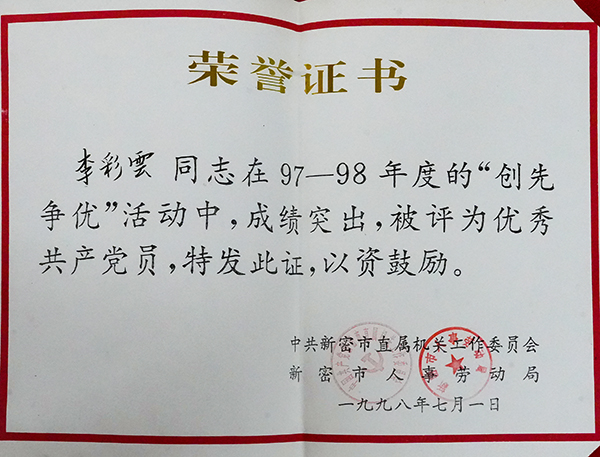 荣誉证书
李彩雲 同志在97—98年度的“创先
争优”活动中，成绩突出，被评为优秀
共产党员，特发此证，以资鼓励。
中共新密市直属机关工作委员会
新密市人事劳动局
一九九八年七月一日